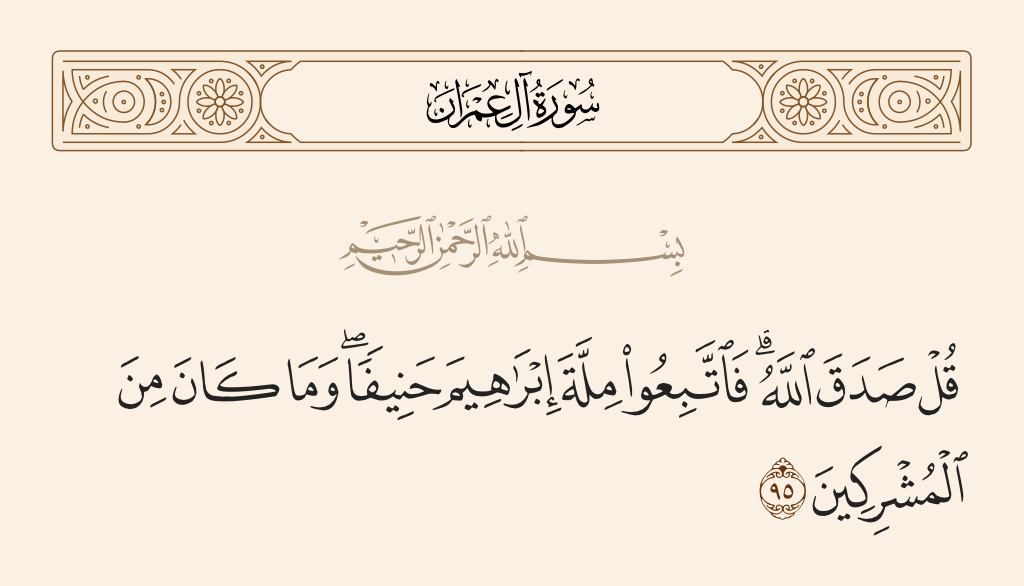 سُورَةُ آلِ عِمْرَان
بِسْمِ ٱللَّهِ ٱلرَّحْمَٰنِ ٱلرَّحِيمِ
قُلْ صَدَقَ ٱللَّهُ ۗ فَٱتَّبِعُوا۟ مِلَّةَ إِبْرَٰهِيمَ حَنِيفًا ۖ وَمَا كَانَ مِنَ
ٱلْمُشْرِكِينَ ٩٥